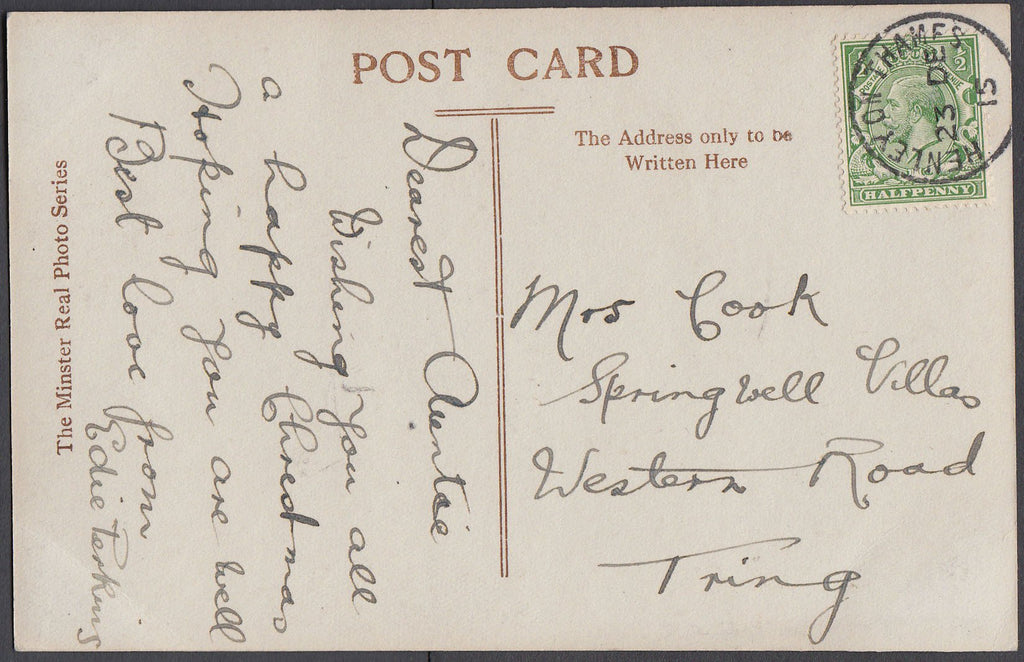 POST CARD
The Address only to be
Written Here
HENLEY ON THAMES
23 DE
15
1/2
HALFPENNY
Mrs Cook
Springwell Villas
Western Road
Tring
Dearest Auntie
Wishing you all
a happy Christmas
Hoping you are well
Best love from
Edie Perkins
The Minster Real Photo Series